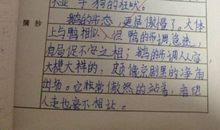 摘抄
如亭狗的狂吠。
鹅的步态,更是傲慢了。大体
上与鸭相似,但鸭的步调急速,
有局促不安之相;鹅的步调从容,
大模大样的,颇像京剧里的净角
出场。它常傲然地站着,看见
人走也毫不相让。